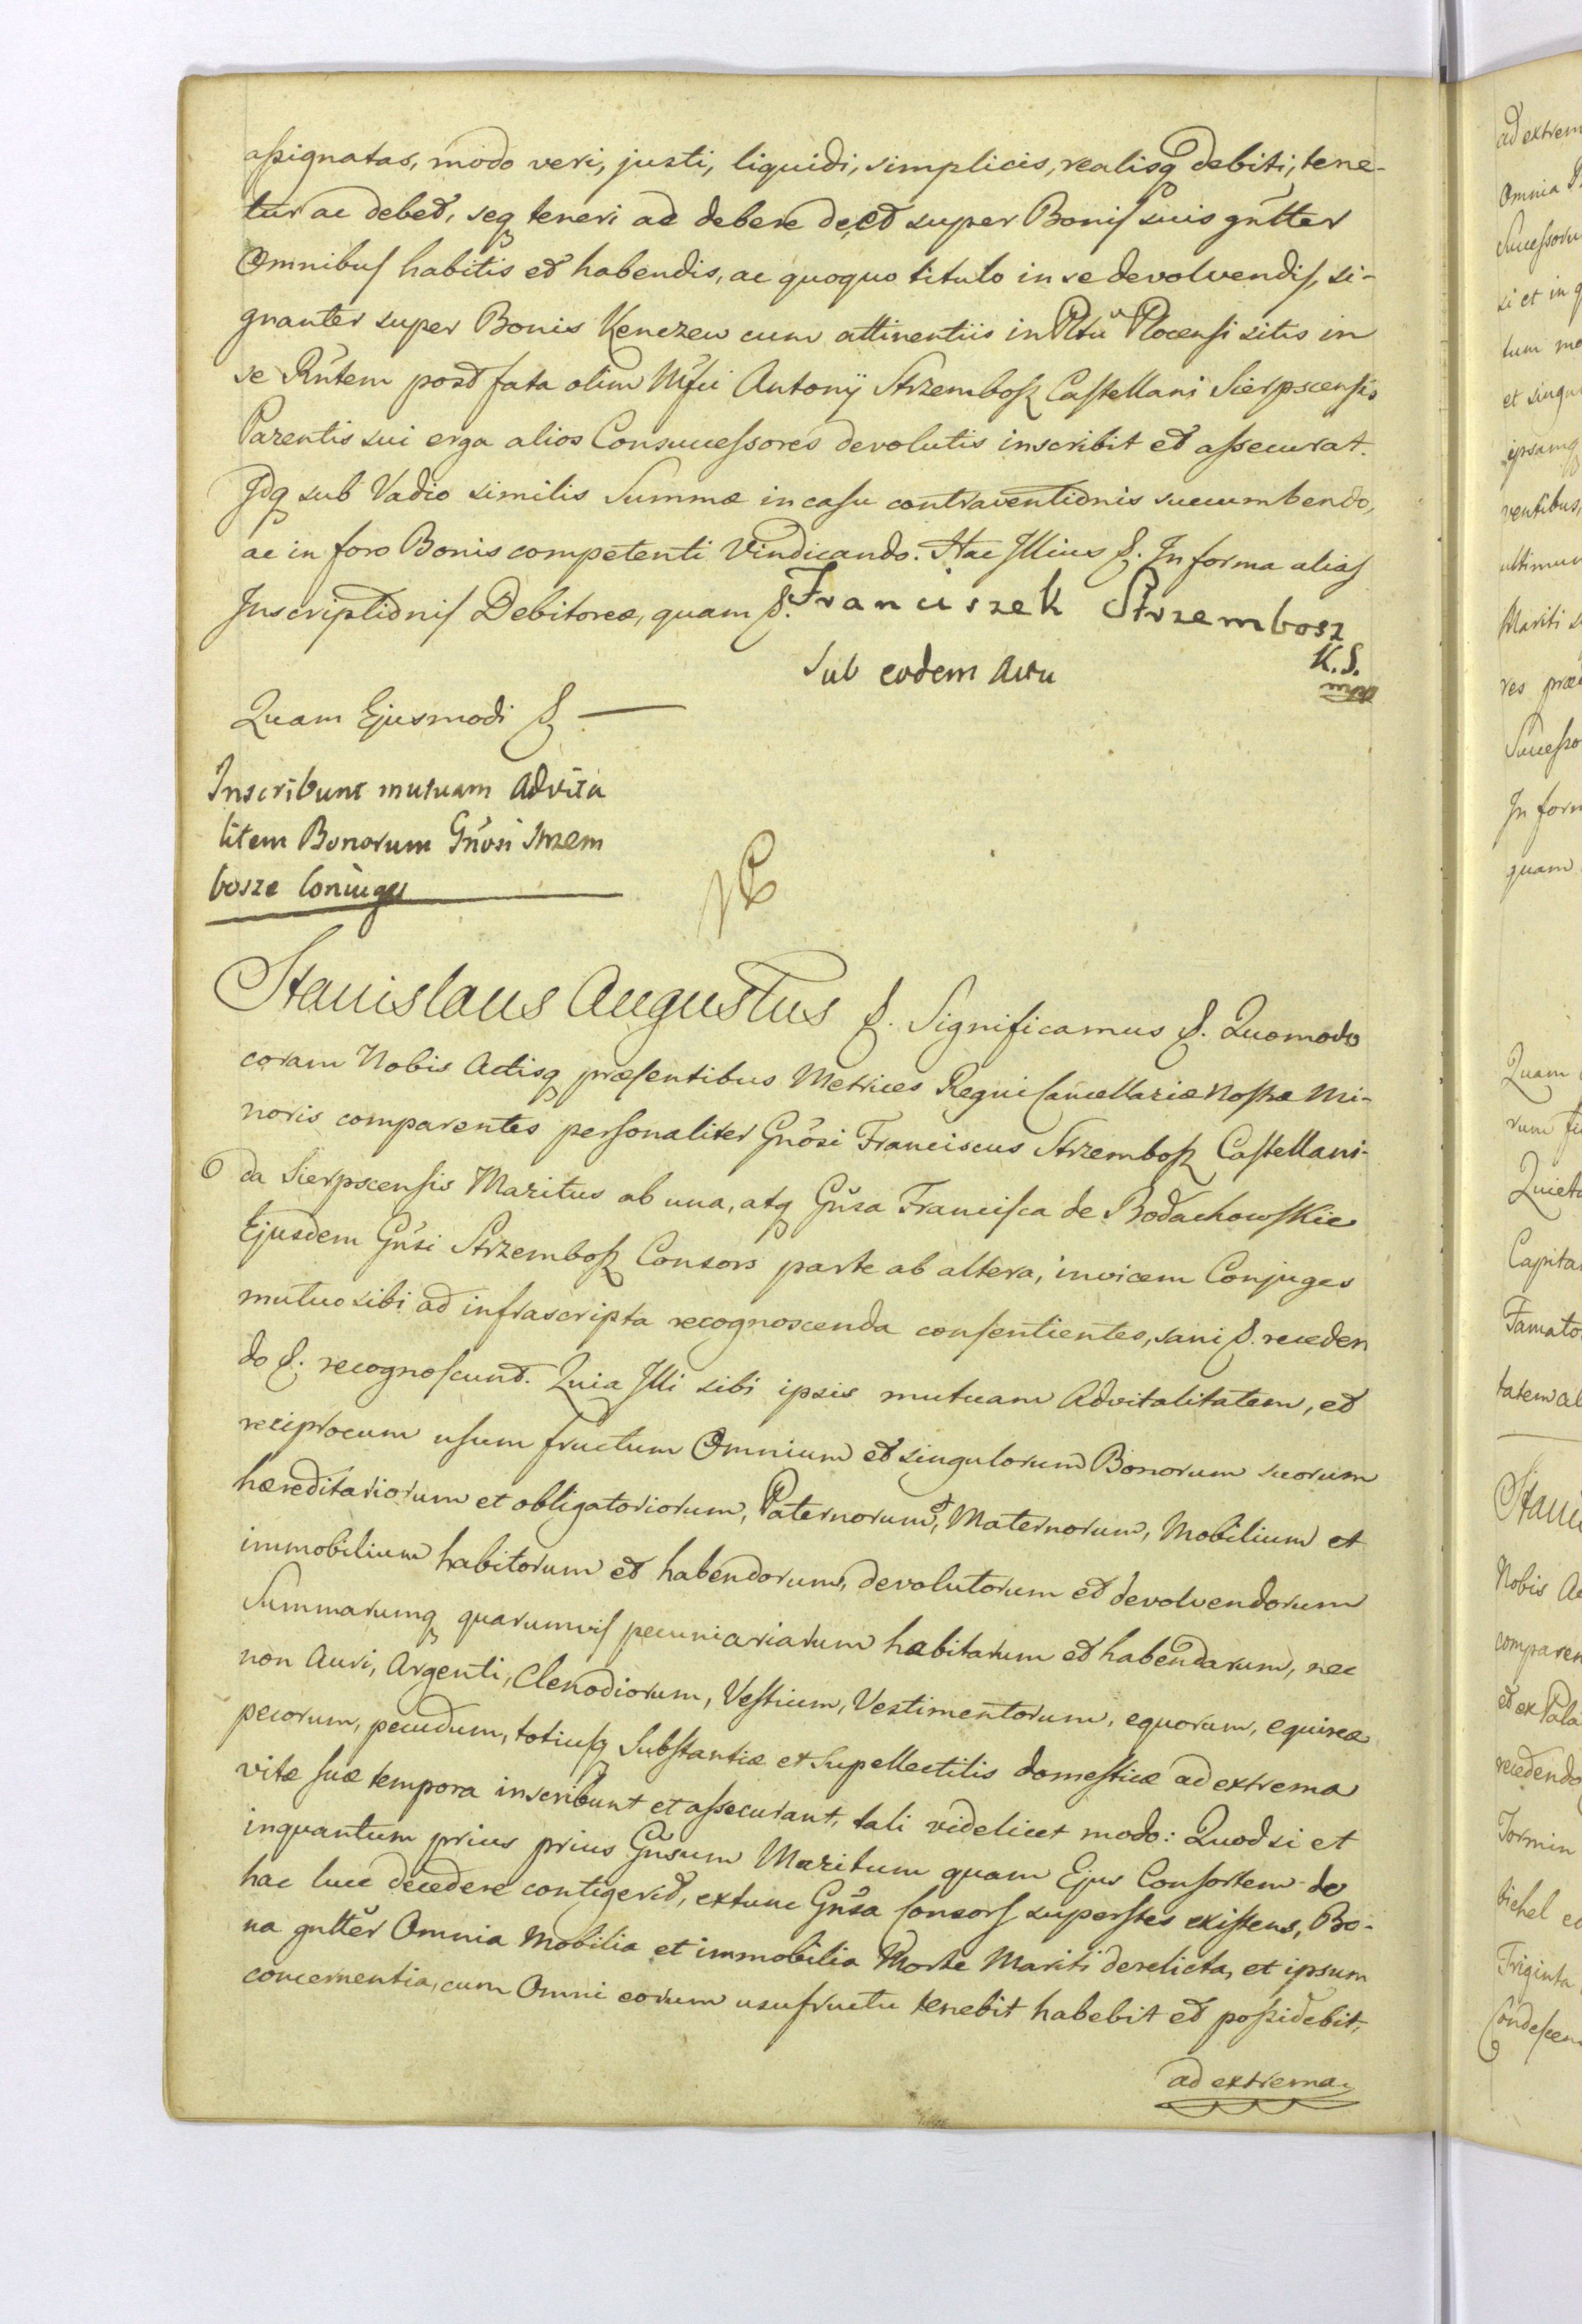 assignatas, modo veri, justi, liquidi, simplicis, realisq debiti, tene-
tur ac debet, seq teneri ac debere dicit super Bonis suis gntter
Omnibus habitis et habendis, ac quoquo titulo in se devolvendis, si-
gnanter super Bonis Kenczew cum attinentiis in Pltu Plocensi sitis in
se Rntem post fata olim Mfci Antonij Strzembosz Castellani Sierpscensis
Parentis sui erga alios Consuccessores devolutis inscribit et assecurat.
Idq sub Vadio similis Summæ in casu contraventionis succumbendo,
ac in foro Bonis competenti Vindicando. Hac Illius &. In forma alias
Inscriptionis Debitoreæ, quam &. Franciszek Strzembosz
K.S.
mpp
Sub eodem Actu
Quam Ejusmodi &
Inscribunt mutuam advita
litem Bonorum Gnosi Strzem
bosze Coniuges
Stanislaus Augustus &. Significamus &. Quomodo
coram Nobis Actisq præsentibus Metrices Regni Cancellariæ Nostræ Mi-
noris comparentes personaliter Gnosi Franciscus Strzembosz Castellani-
da Sierpscensis Maritus ab una, atq Gnsa Francisca de Bodachowskie
Ejusdem Gnsi Strzembosz Consors parte ab altera, invicem Conjuges
mutuo sibi ad infrascripta recognoscenda consentientes, sani &. receden
do &. recognoscunt. Quia Illi sibi ipsis mutuam Advitalitatem, et
reciprocum usum fructum Omnium et singulorum Bonorum suorum
hæreditariorum et obligatoriorum, Paternorum, Maternorum, Mobilium et
immobilium habitorum et habendorum, devolutorum et devolvendorum
Summarumq quarumvis pecuniariarum habitarum et habendarum, nec
non Auri, Argenti, Clenodiorum, Vestium, Vestimentorum, equorum, equireæ
pecorum, pecudum, totiusq Substantiæ et Supellectilis domesticæ ad extrema
vitæ suæ tempora inscribunt et assecurant, tali videlicet modo: Quodsi et
inquantum prius prius Gnsum Maritum quam Ejus Consortem de
hac luce decedere contigerit, extunc Gnsa Consors superstes existens, Bo-
na gntter Omnia Mobilia et immobilia Morte Mariti derelicta, et ipsum
concernentia, cum Omni eorum usufructu tenebit habebit et possidebit,
ad extrema